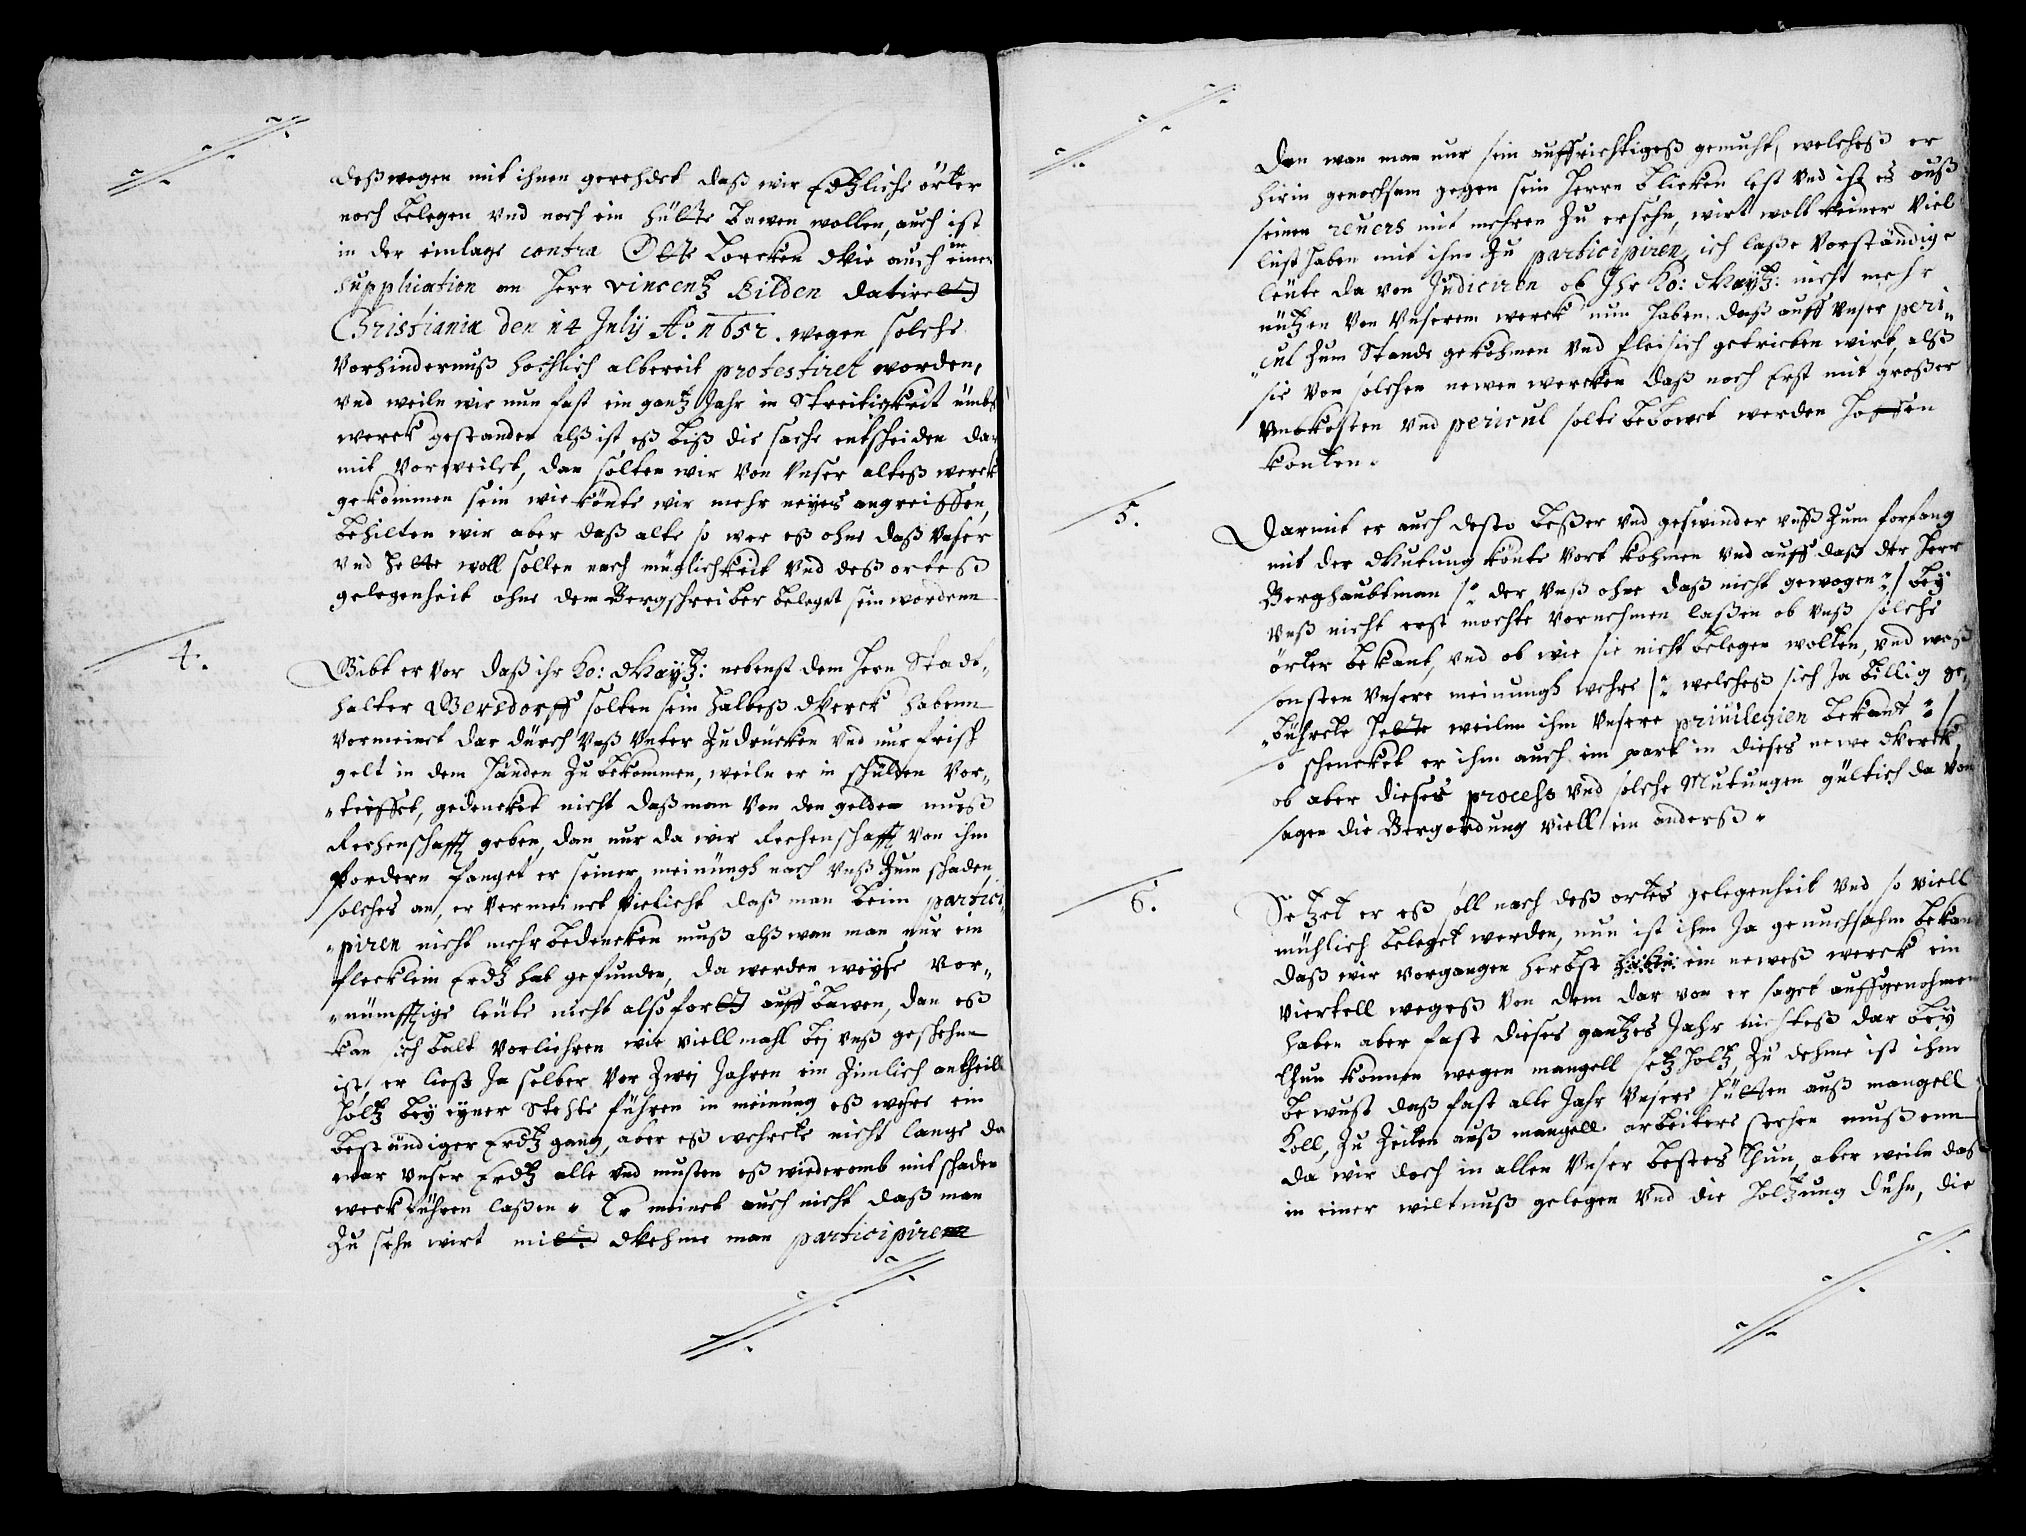 deßwegen mit ihnen gerehdet daß wir Ertzliche örter
noch belegen vnd noch ein hütte bawen wollen, auch ist
in der einlage contra Otte Lorcken Wie auch in einer
supplication an Herr Vincentz Bilden datiret
Christiania den 14 Julij Ao. 1652. wegen solche
Vorhindernuß hochlich albereit protestiret worden,
vnd weiln wir nun fast ein gantz Jahr in Streitigkeit umbs
werck gestanden alß ist eß biß die sache entscheiden dar
mit Vorweilet, dan solten wir Von Vnser alteß werck
gekommen sein wie könte wir mehr neyes angreiffen,
behilten wir aber daß alte so wer eß ohne daß Vnser
vnd hette woll sollen nach müglichkeit Vnd deß orteß
gelegenheit ohne dem Bergschreiber beleget sein wordenn
4.
Gibt er vor daß ihr Ko: Maytz: nebenst dem Hern Stadt-
halter Gersdorff solten sein halbeß Werck habenn
Vormeinet dar durch Vnß Vnter Zudrucken Vnd nur frisch
gelt in dem händen Zu bekommen, weiln er in schulten Vor-
tieffet, gedencket nicht daß man Von den gelder muß
Rechenschafft geben, dan nur da wir Rechenschafft Von ihm
fordern fanget er seiner meinungh nach Vnß Zum schaden,
solches an, er Vermeinet Vielicht daß man beim partici-
piren nicht mehr bedencken muß alß wan man nur ein
flecklein Erdtz hat gefunden, da werden weyse Vor-
nümfftige leute nicht also fort auff bawen, dan eß
kan sich balt Vorliehren wie viell mahl bej vnß geschehn
ist, er ließ Ja selber Vor Zwej Jahren ein Zimlich antheill
holtz bey eyner Stehte führen in meinung eß wehre ein
beständiger Erdtz gang, aber eß wehrete nicht lange da
war Vnser Erdtz alle Vnd musten eß wiederomb mit schaden
weck führen laßen. Er meinet auch nicht daß man
Zu sehn wirt mit Wehme man participiren
Den wan man nur sein auffrichtigeß gemuht, welcheß er
hirin genochsam gegen sein Herrn blicken lest Vnd ist es auß
seinen revers mit mehren Zu ersehn, wirt woll keiner Viel
lust haben mit ihm Zu participiren, ich laße Vorständige
leute da von Judiciren ob Ihr Ko: Maytz: nicht mehr
nützen Von Vnserem werck nun haben. daß auff Vnser peri-
cul Zum Stande gekohmen Vnd fleisich getrieben wirt, alß
sie Von solchen newen wercken daß noch Erst mit großer
Vnkosten Vnd pericul solte bebowet werden hoffen
konten.
5.
Darmit er auch desto beßer Vnd geswinder vnß Zum forfang
mit der Mutung könte Vort kohmen Vnd auff daß der Herr
Berghaubtman /: der Vnß ohne daß nicht gewogen :/ bey
Vnß nicht erst mochte Vornehmen laßen ob Vnß solche
örter bekant, vnd ob wir sie nicht belegen wolten, vnd waß
sonsten Vnsere meinungh wehre /: welcheß sich Ja billig ge-
bührete hette weiln ihm Vnsere privilegien bekandt :/
so schencket er ihm auch ein part in dieses newe Werck,
ob aber dieses process Vnd solche Mutungen gültich da von
sagen die Bergordnung Viell ein anderß.
6.
Setzet er eß soll nach deß ortes gelegenheit Vnd so viell
mühlich beleget werden, nun ist ihm Ja genuchsahm bekand
daß wir vorgangen herbst ein neweß werck ein
Viertell wegeß Von dem dar von er saget auffgenohmen
haben aber fast dieses gantzes Jahr nichteß dar bey
thun konnen wegen mangell setz holtz, Zu dehme ist ihm
bewust daß fast alle Jahr Vnsere hütten auß mangell
Koll, Zu Zeiten auß mangell arbeitere stehen mussenn
da wir doch in allen Vnser bestes thun, aber weiln das
in einer wiltnuß gelegen Vnd die holtzung duhn, die